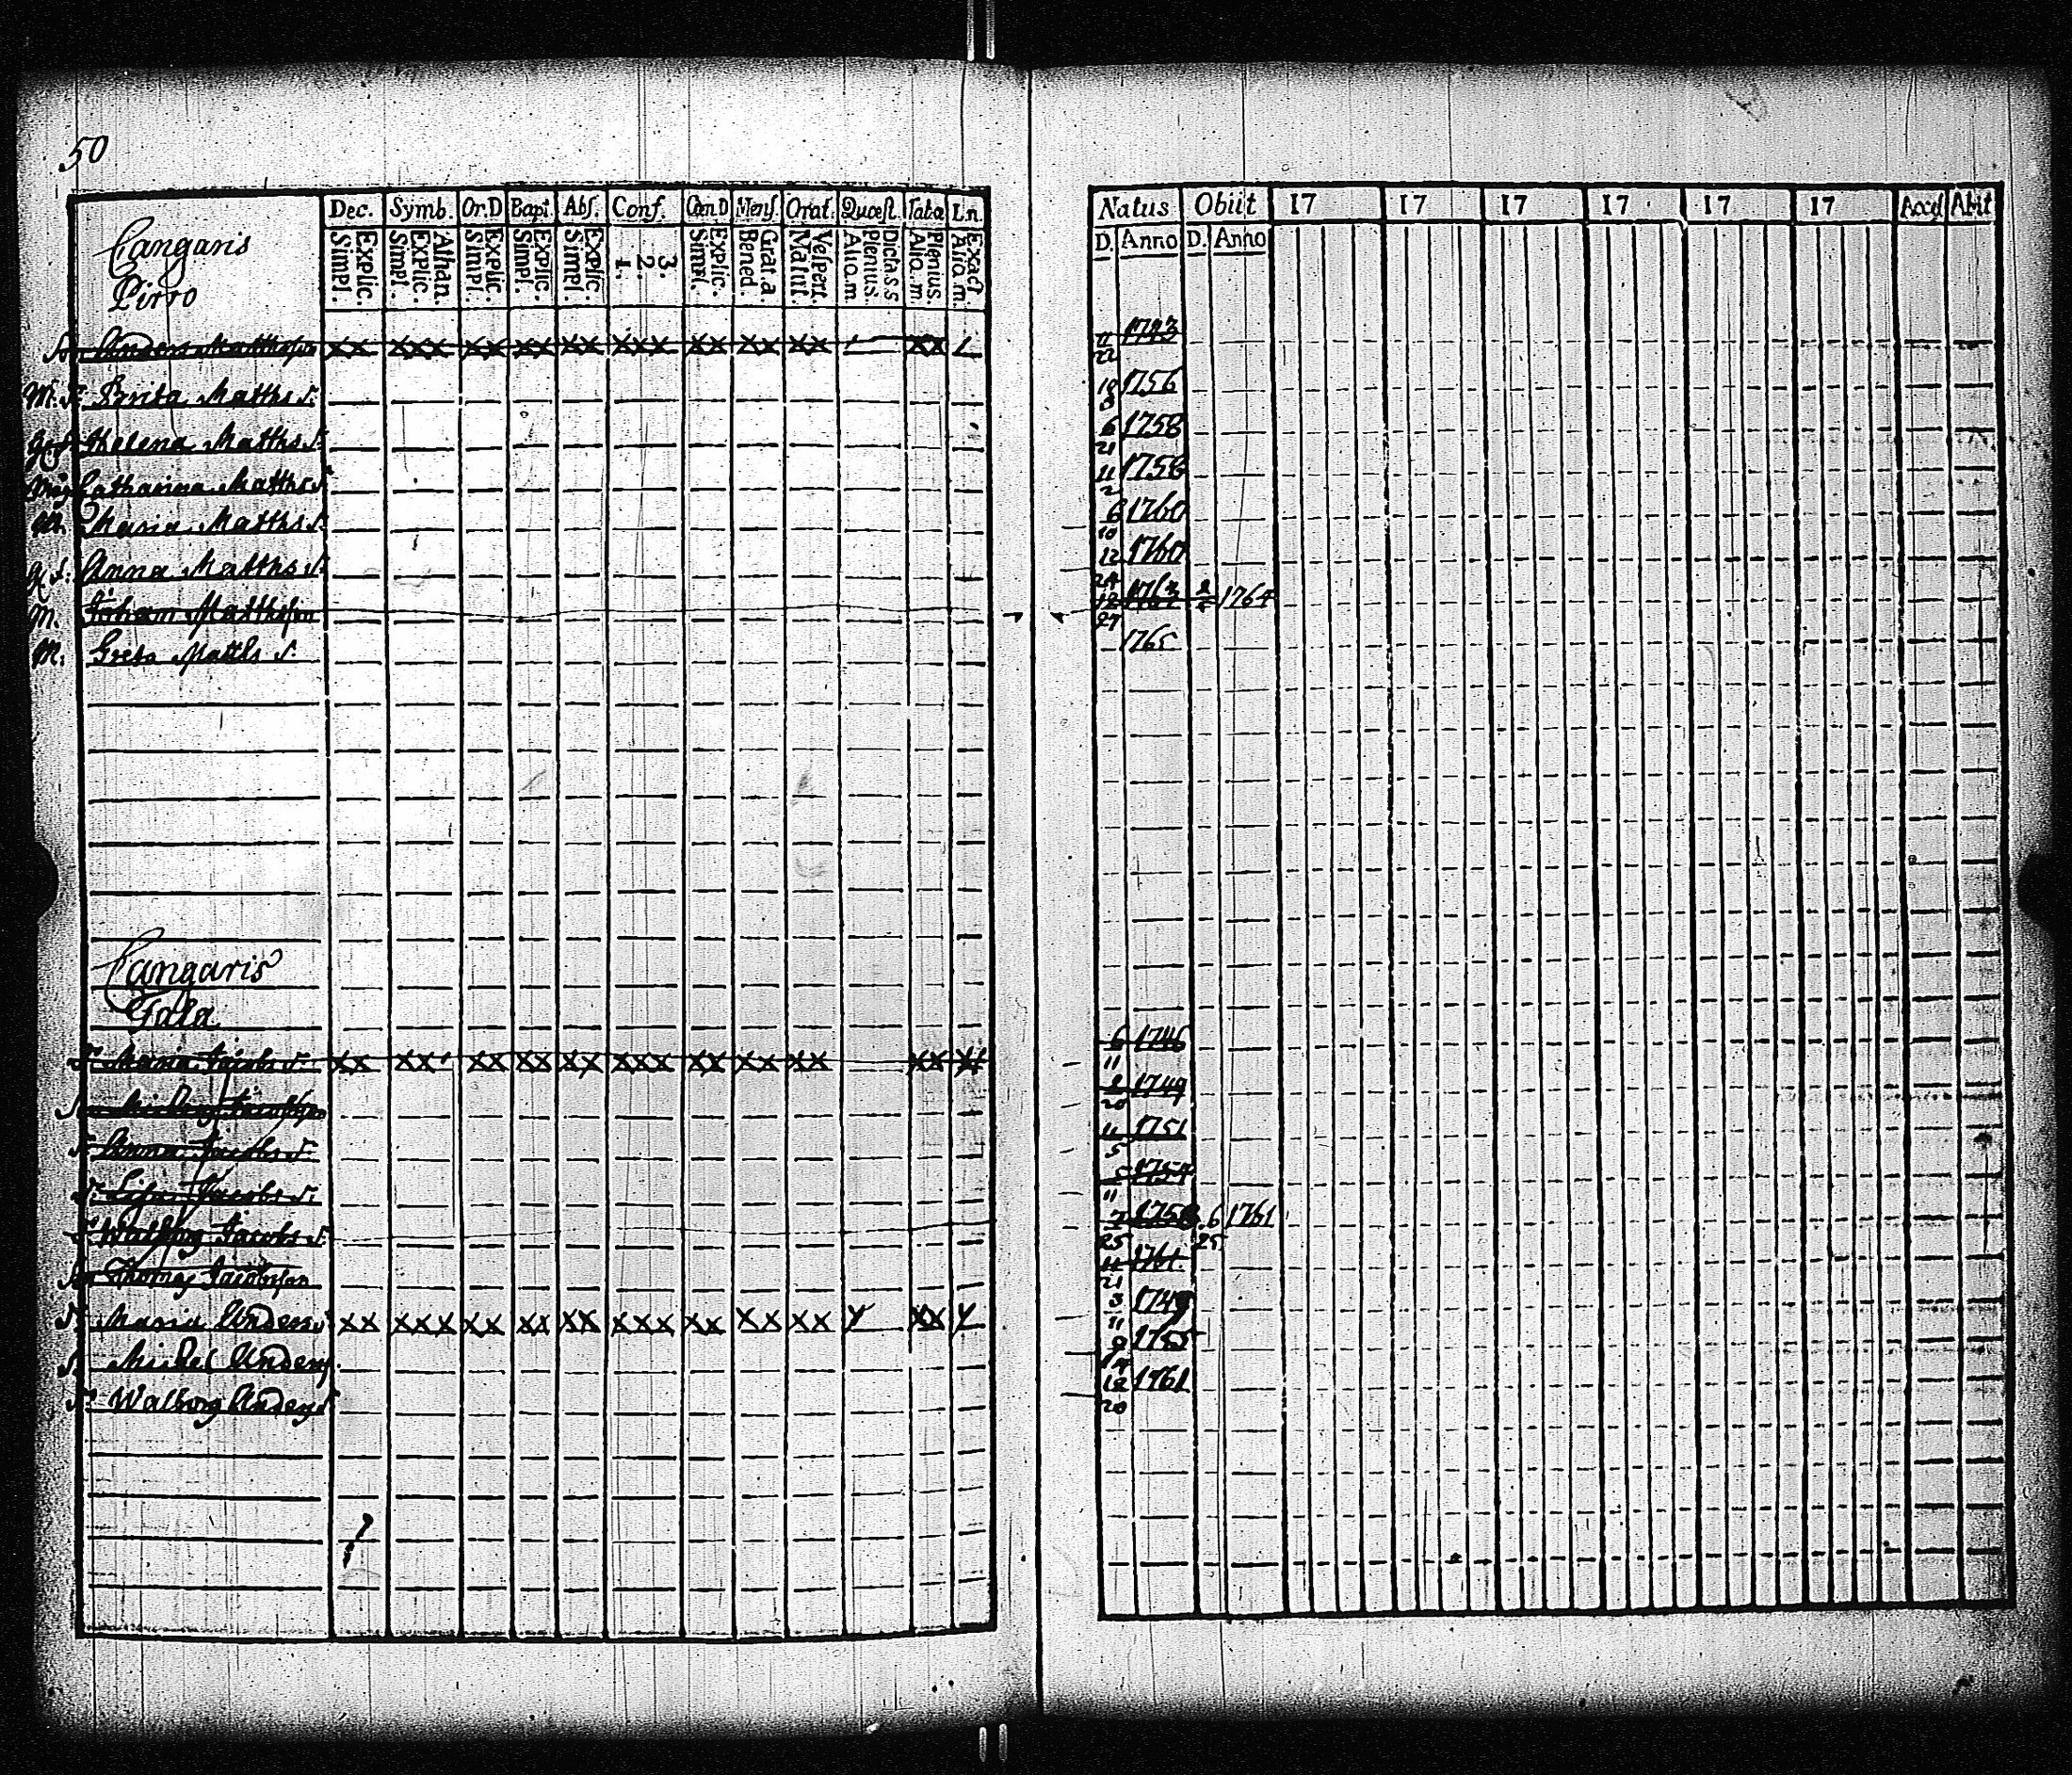 50
Cangaris
Pirro
Dec. Symb. Or.D Bapt. Abs. Conf. Cœn.D Mens. Orat. Quæst. Taba Ln.
Simpl. Explic. Simpl. Explic. Athan. Simpl. Explic. Simpl. Explic. Simpl. Explic. 1. 2. 3. Simpl. Explic. Bened. Grat.a Matut. Vespert. Alio.m. Plenius. Dicta.s.s Alio.m. Plenius. Alio.m. Exact
Natus Obiit 17 17 17 17 17 17 Acced Abit
D. Anno D. Anno
Anders Mattsson xx xxx xx xx xx xxx xx xx xx xx 11 22 1743
Brita Matths d. 1756
Helena Matths d. 6 21 1758
Catharina Matths d. 11 2 1758
Maria Matths d. 6 10 1760
Anna Matths d. 12 24 1760
M. Matthsson 12 27 1764
M. Greta Matths d. 1765
Cangaris
Gala
Maria Jacobs d. xx xx xx xx xx xxx xx xx xx xx 6 11 1746
2 20 1749
Anna Jacobs d. 11 5 1751
Lisa Jacobs d. 11 1754
Walborg Jacobs d. 7 25 1758 6 25 1761
Thomas Jacobsson 11 21 1761
Maria Anders d. xx xxx xx xx xx xxx xx xx xx xx 3 11 1749
Michel Anders 9 1755
Walborg Anders d. 12 20 1761